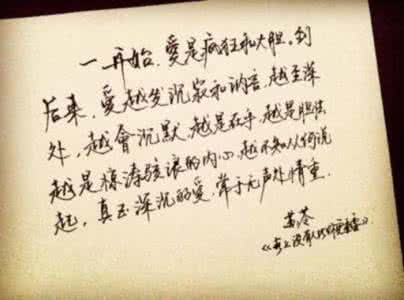 一开始，愛是疯狂和大胆。到
后来，愛越发沉寂和讷言，越至深
处，越會沉默，越是在乎，越是胆怯
越是惊涛骇浪的内心，越不知从何说
起，真正深沉的爱，常于无声处情重。
苏芩